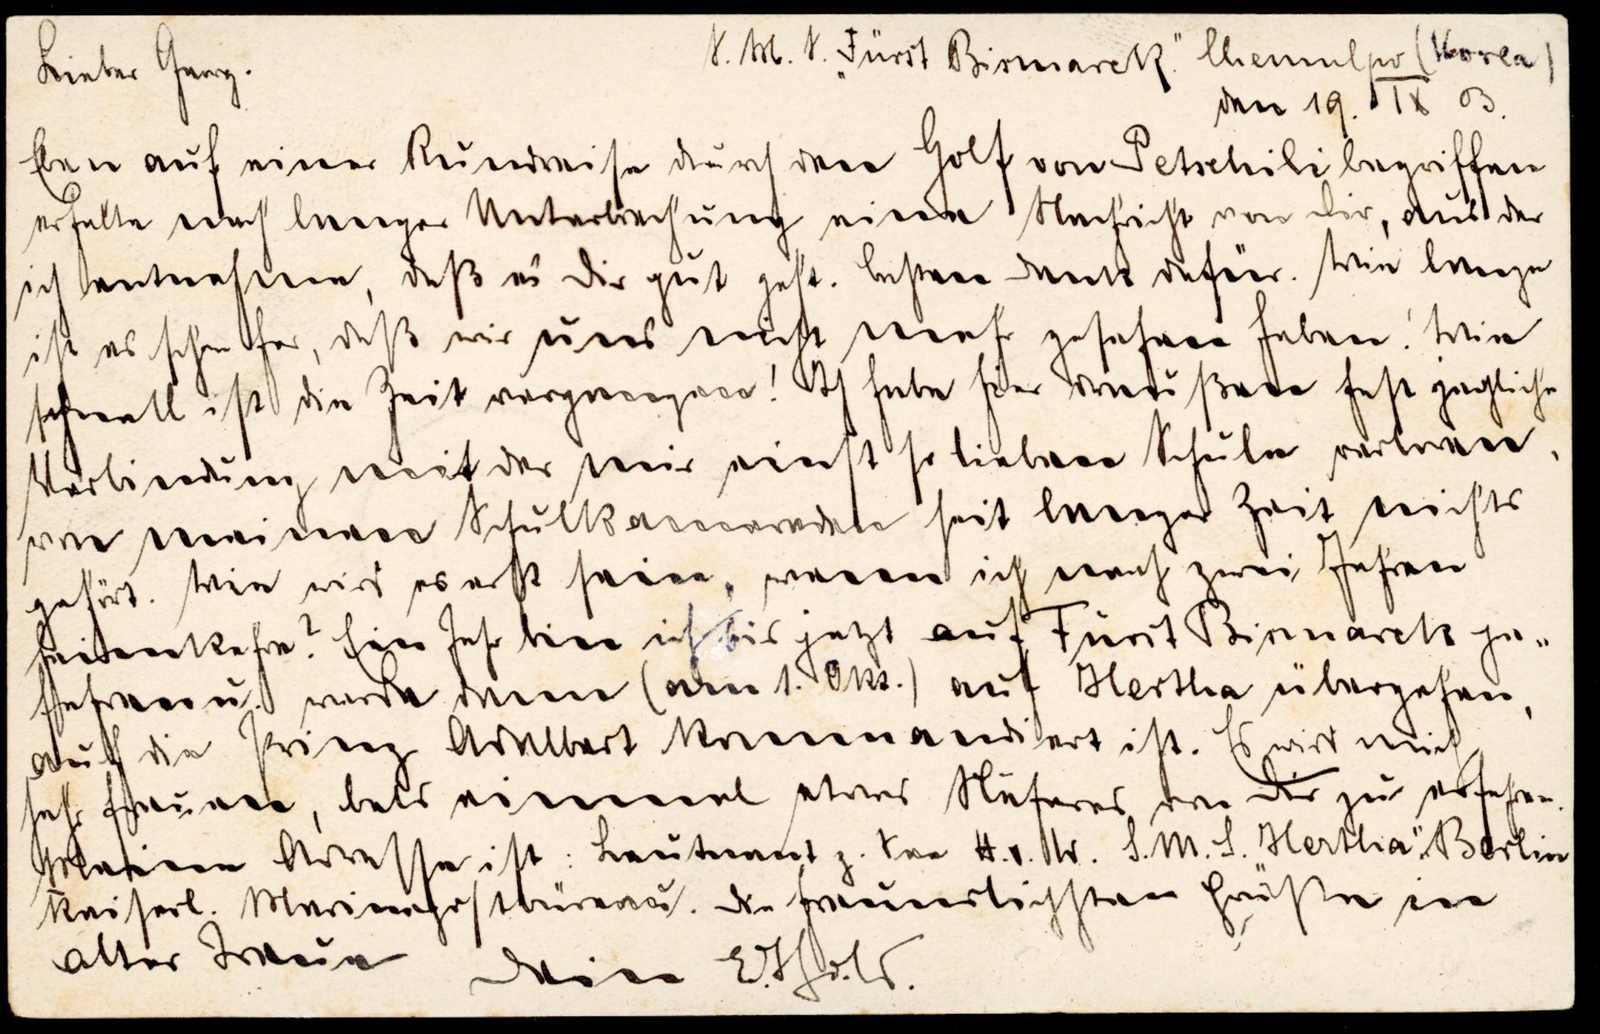 Lieber Georg.
S. M. S. „Fürst Bismarck." Chemulpo (Korea)
den 19. IX 03.
Eben auf einer Rundreise durch den Golf von Petschili begriffen
erhalte nach langer Unterbrechung eine Nachricht von Dir, aus der
ich entnehme, daß es Dir gut geht. Besten Dank dafür. Wie lange
ist es schon her, daß wir uns nicht mehr gesehen haben! Wie
schnell ist die Zeit vergangen! Ich habe hier draußen fast jegliche
Verbindung mit der mir einst so lieben Schule verloren,
von meinen Schulkameraden seit langer Zeit nichts
gehört. Wie wird es erst sein, wenn ich nach zwei Jahren
heimkehre? Ein Jahr bin ich bis jetzt auf Fürst Bismarck ge-
fahren u. werde dann (am 1. Okt.) auf Hertha übergehen,
auf die Prinz Adalbert kommandiert ist. Es wird mich
sehr freuen, bald einmal etwas Näheres von Dir zu erfahren.
Meine Adresse ist: Leutnant z. See S. M. S. „Hertha". Berlin
Kaiserl. Marinepostbüreau. Die freundlichsten Grüße in
alter Treue Dein